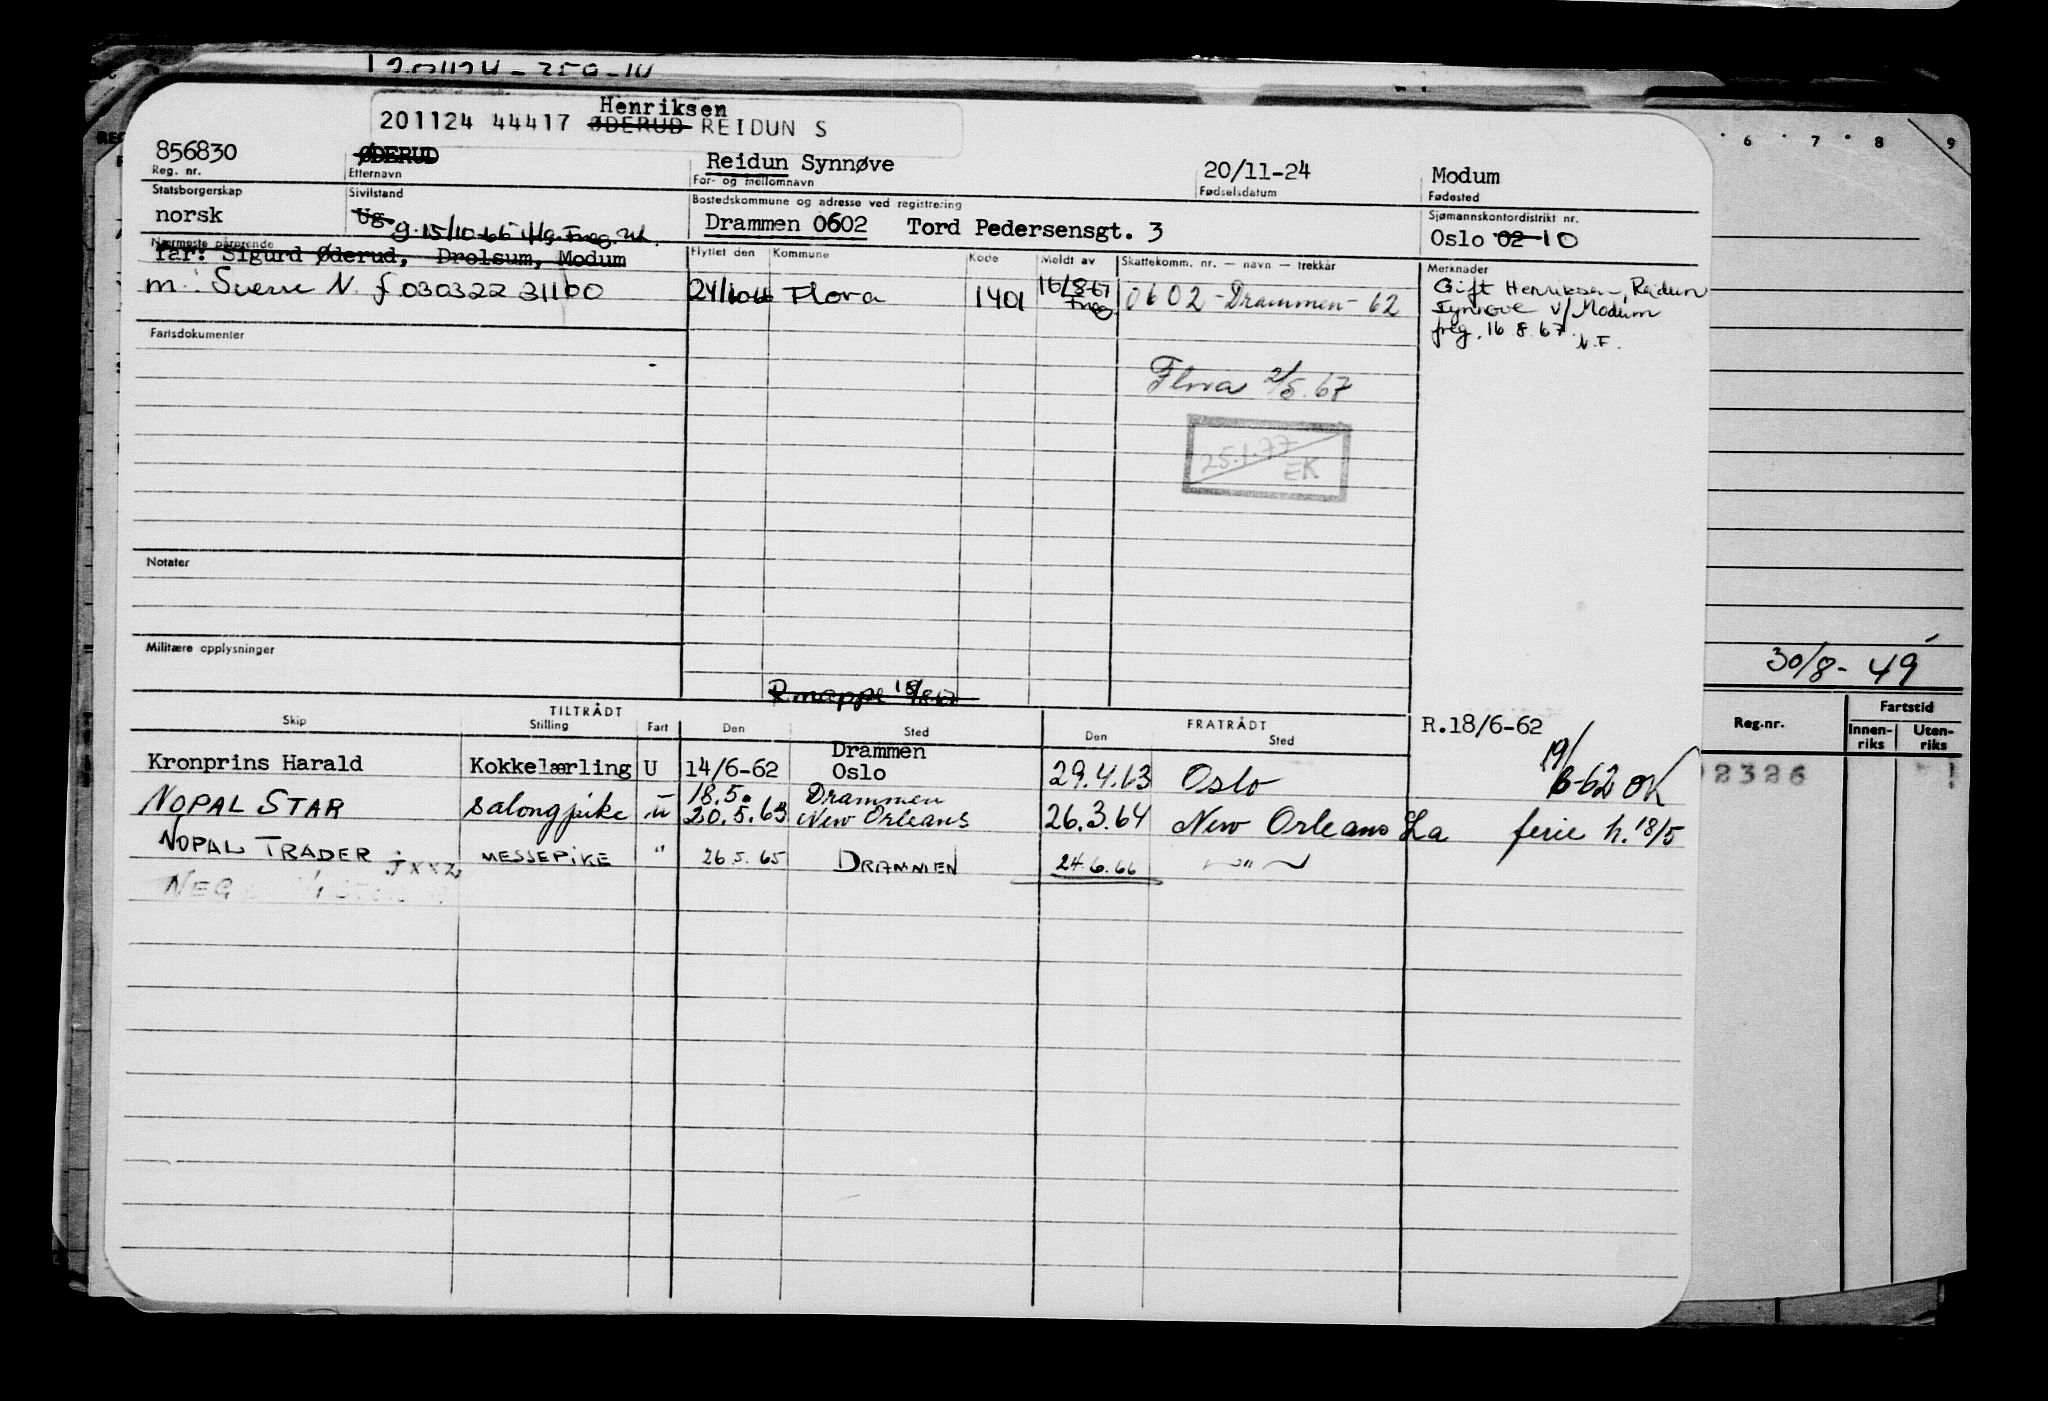 Henriksen
201124 44417 ØDERUD REIDUN S
856830 ØDERUD Reidun Synnøve 20/11-24 Modum
Reg. nr. Etternavn For- og mellomnavn Fødselsdatum Fødested
Statsborgerskap Sivilstand Bostedskommune og adresse ved registrering Sjømannskontordistrikt nr.
norsk Ug. Drammen 0602 Tord Pedersensgt. 3 Oslo 02 10
g. 15/10-66
Nærmeste pårørende Flyttet den Kommune Kode Meldt av Skattekomm. nr. — navn — trekkår Merknader
far: Sigurd Øderud, Drolsum, Modum
m. Sverre N. f 030322 31100 Flora 1401 16/8-67 0602 - Drammen - 62
Freg
Gift Henriksen, Reidun
Synnøve v/Modum
freg. 16 8. 67.
N.F.
Fartsdokumenter
Flora 2/5.67
25.1.77
EK
Notater
Militære opplysninger
30/8- 49
Rmappe
TILTRÅDT FRATRÅDT R.18/6-62
Skip Stilling Fart Den Sted Den Sted
Reg.nr. Fartstid
Innenriks Utenriks
Drammen
Kronprins Harald Kokkelærling U 14/6-62 Oslo 29.4.63 Oslo 19/6-62 OK
18.5. Drammen
NOPAL STAR salongpike u 20.5.63 New Orleans 26.3.64 New Orleans La ferie h. 18/5
NOPAL TRADER JXXZ MESSEPIKE " 26.5.65 DRAMMEN 24.6.66 —"—
2326
6 7 8 9